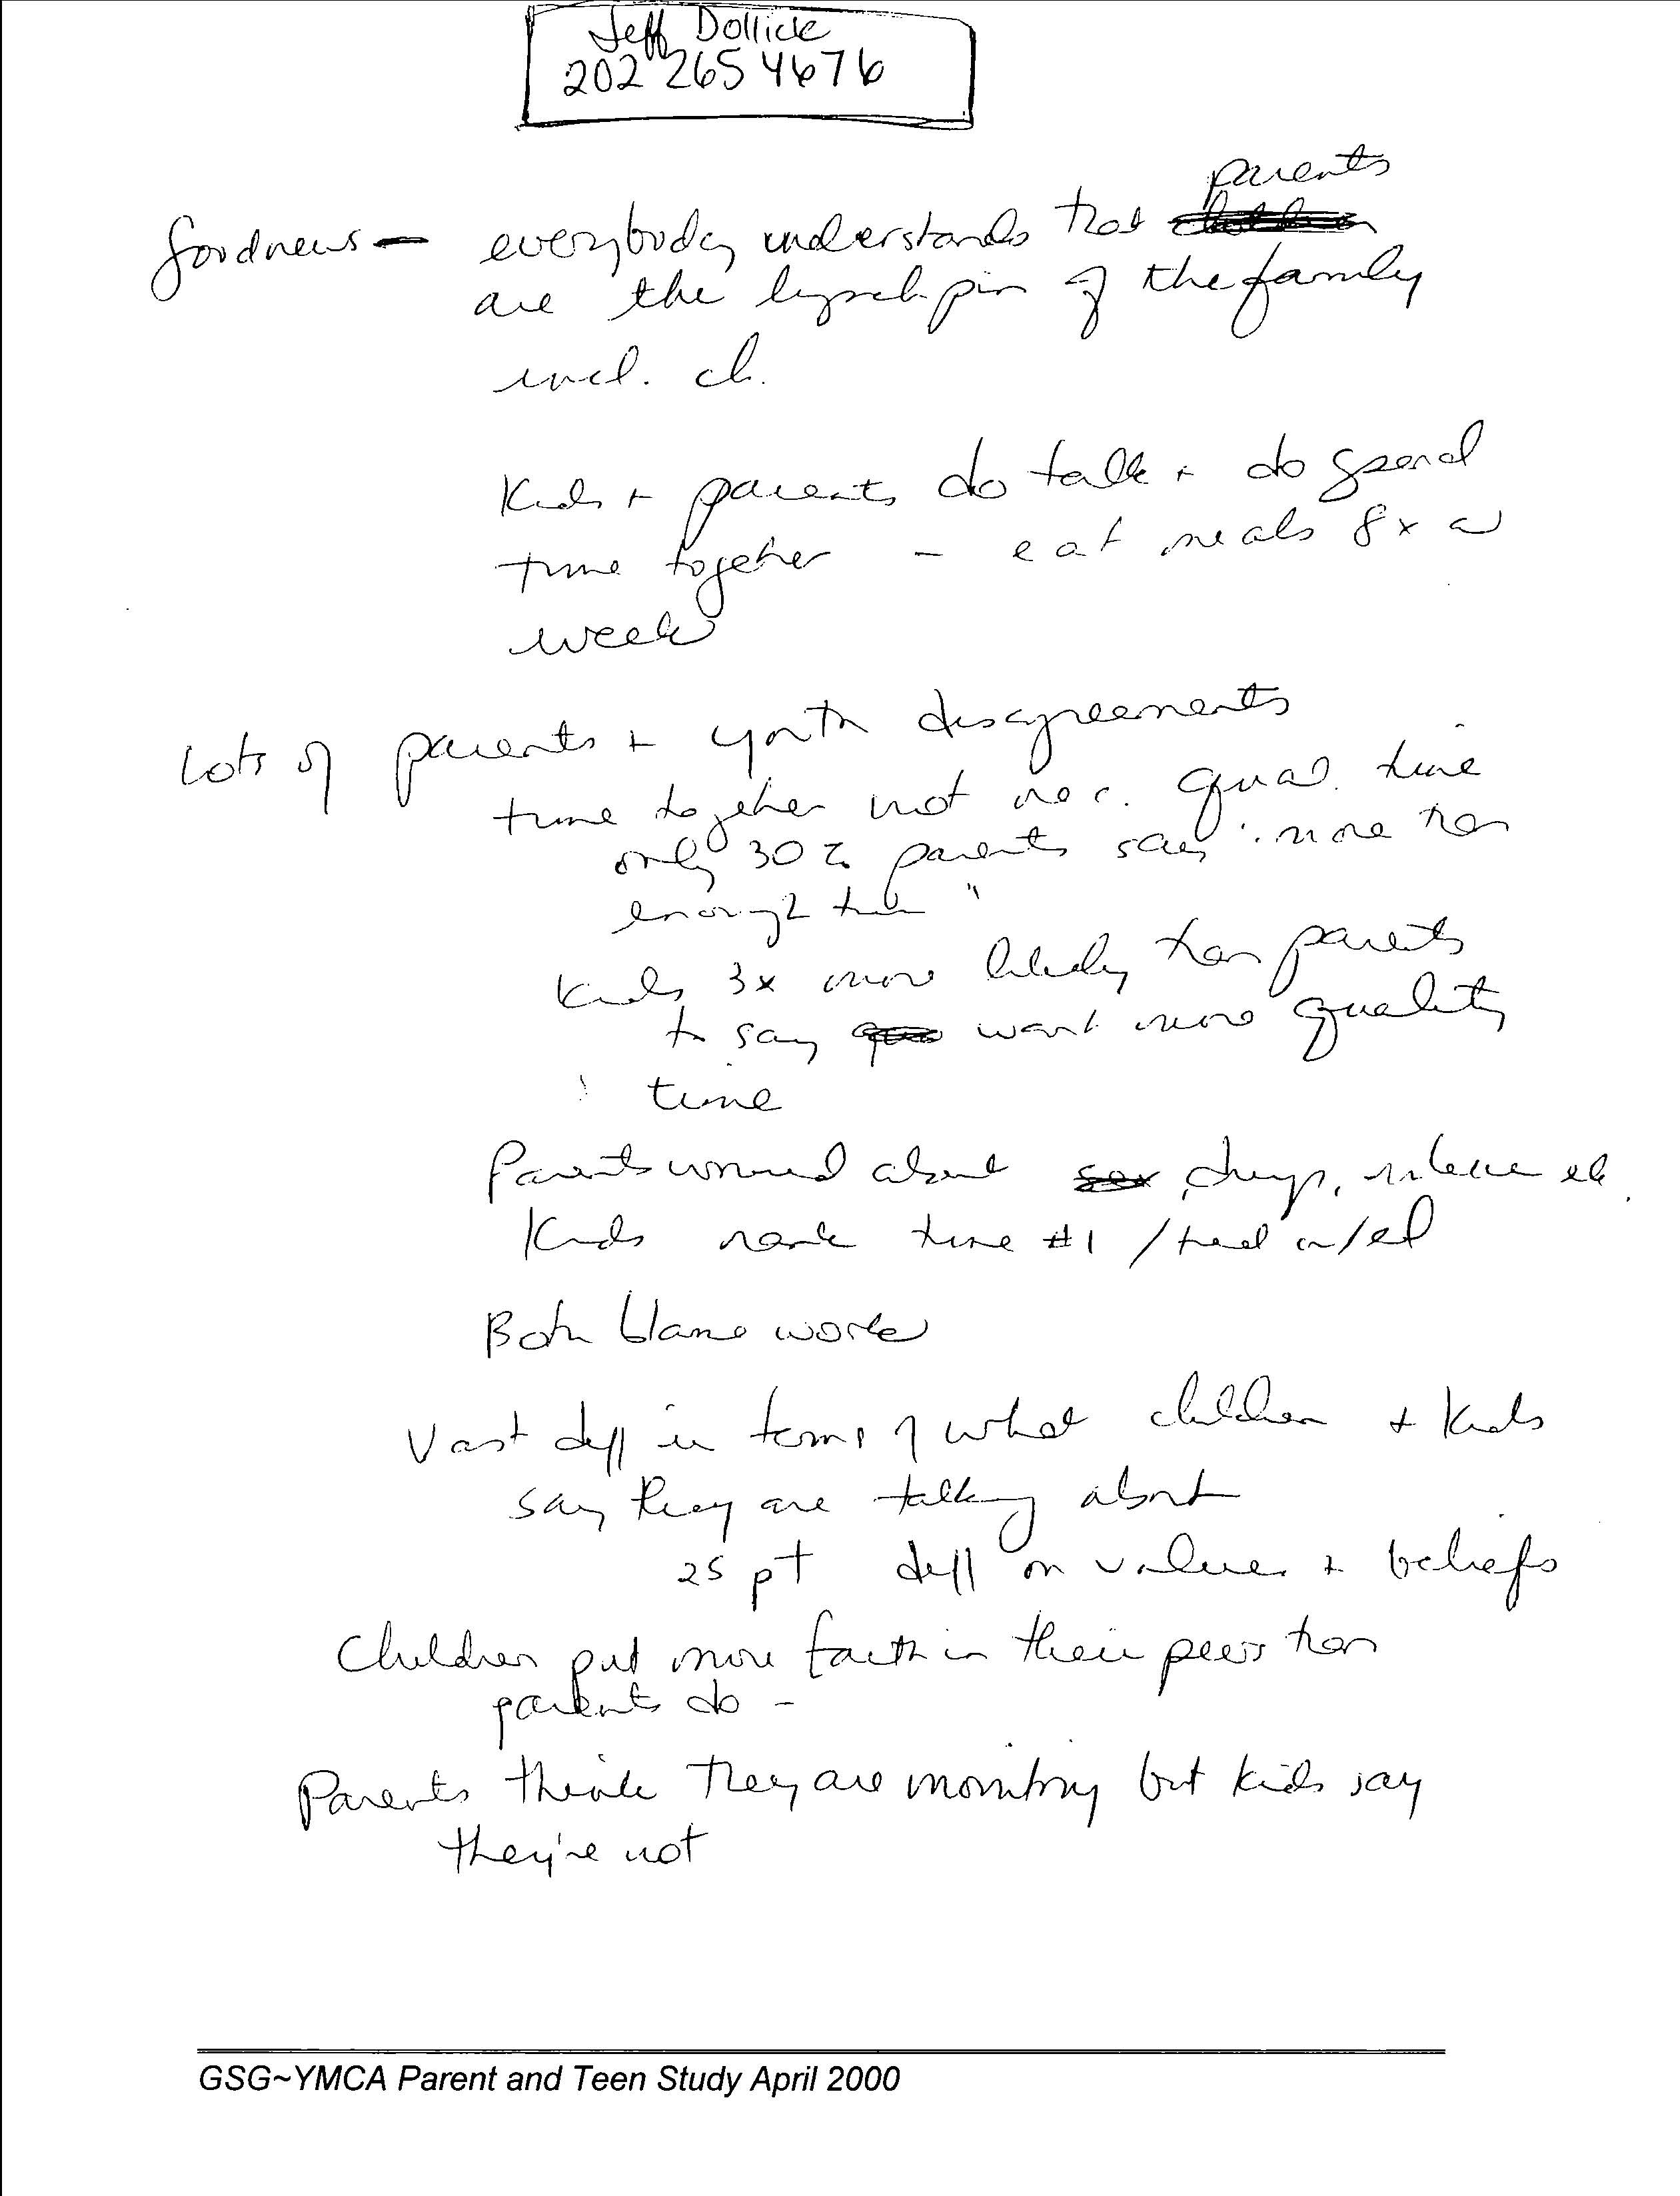 Jeff Dollick
202 265 4676
parents
Good news - everybody understands that
are the lynch pin of the family
incl. ch.
Kids + parents do talk + do spend
time together - eat meals 8x a
week
Lots of parents + youth disagreements
time together not nec. qual. time
only 30% parents say "more than
enough time"
Kids 3x more likely than parents
to say want more quality
time
Parents worried about sex, drugs, violence etc.
Kids rank time #1 / tied w/ed
Both blame work
Vast diff in terms of what children + kids
say they are talking about
25 pt diff on values + beliefs
Children put more faith in their peers than
parents do -
Parents think they are monitoring but kids say
they're not
GSG~YMCA Parent and Teen Study April 2000